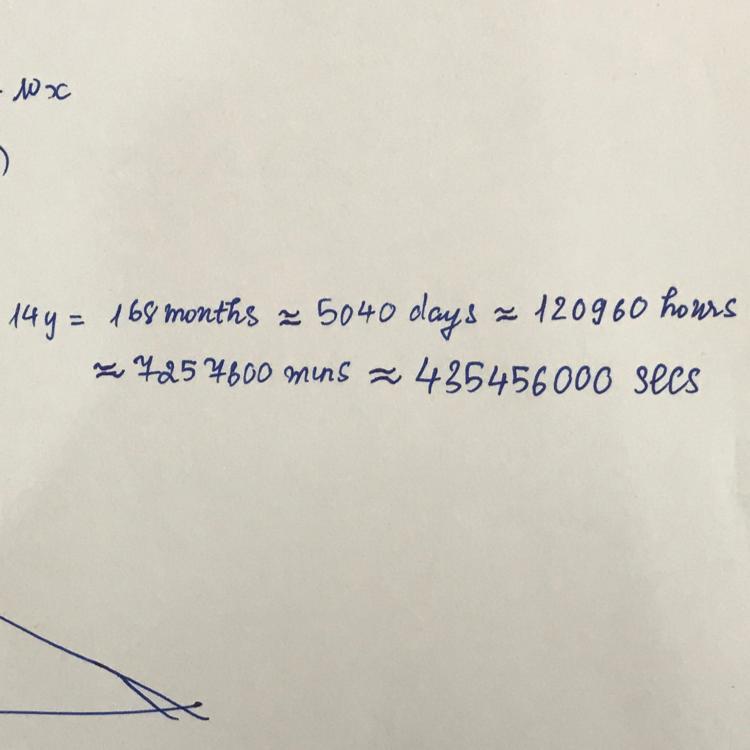 - 10x
)
14y = 168 months ≈ 5040 days ≈ 120960 hours
≈ 7257600 mins ≈ 435456000 secs